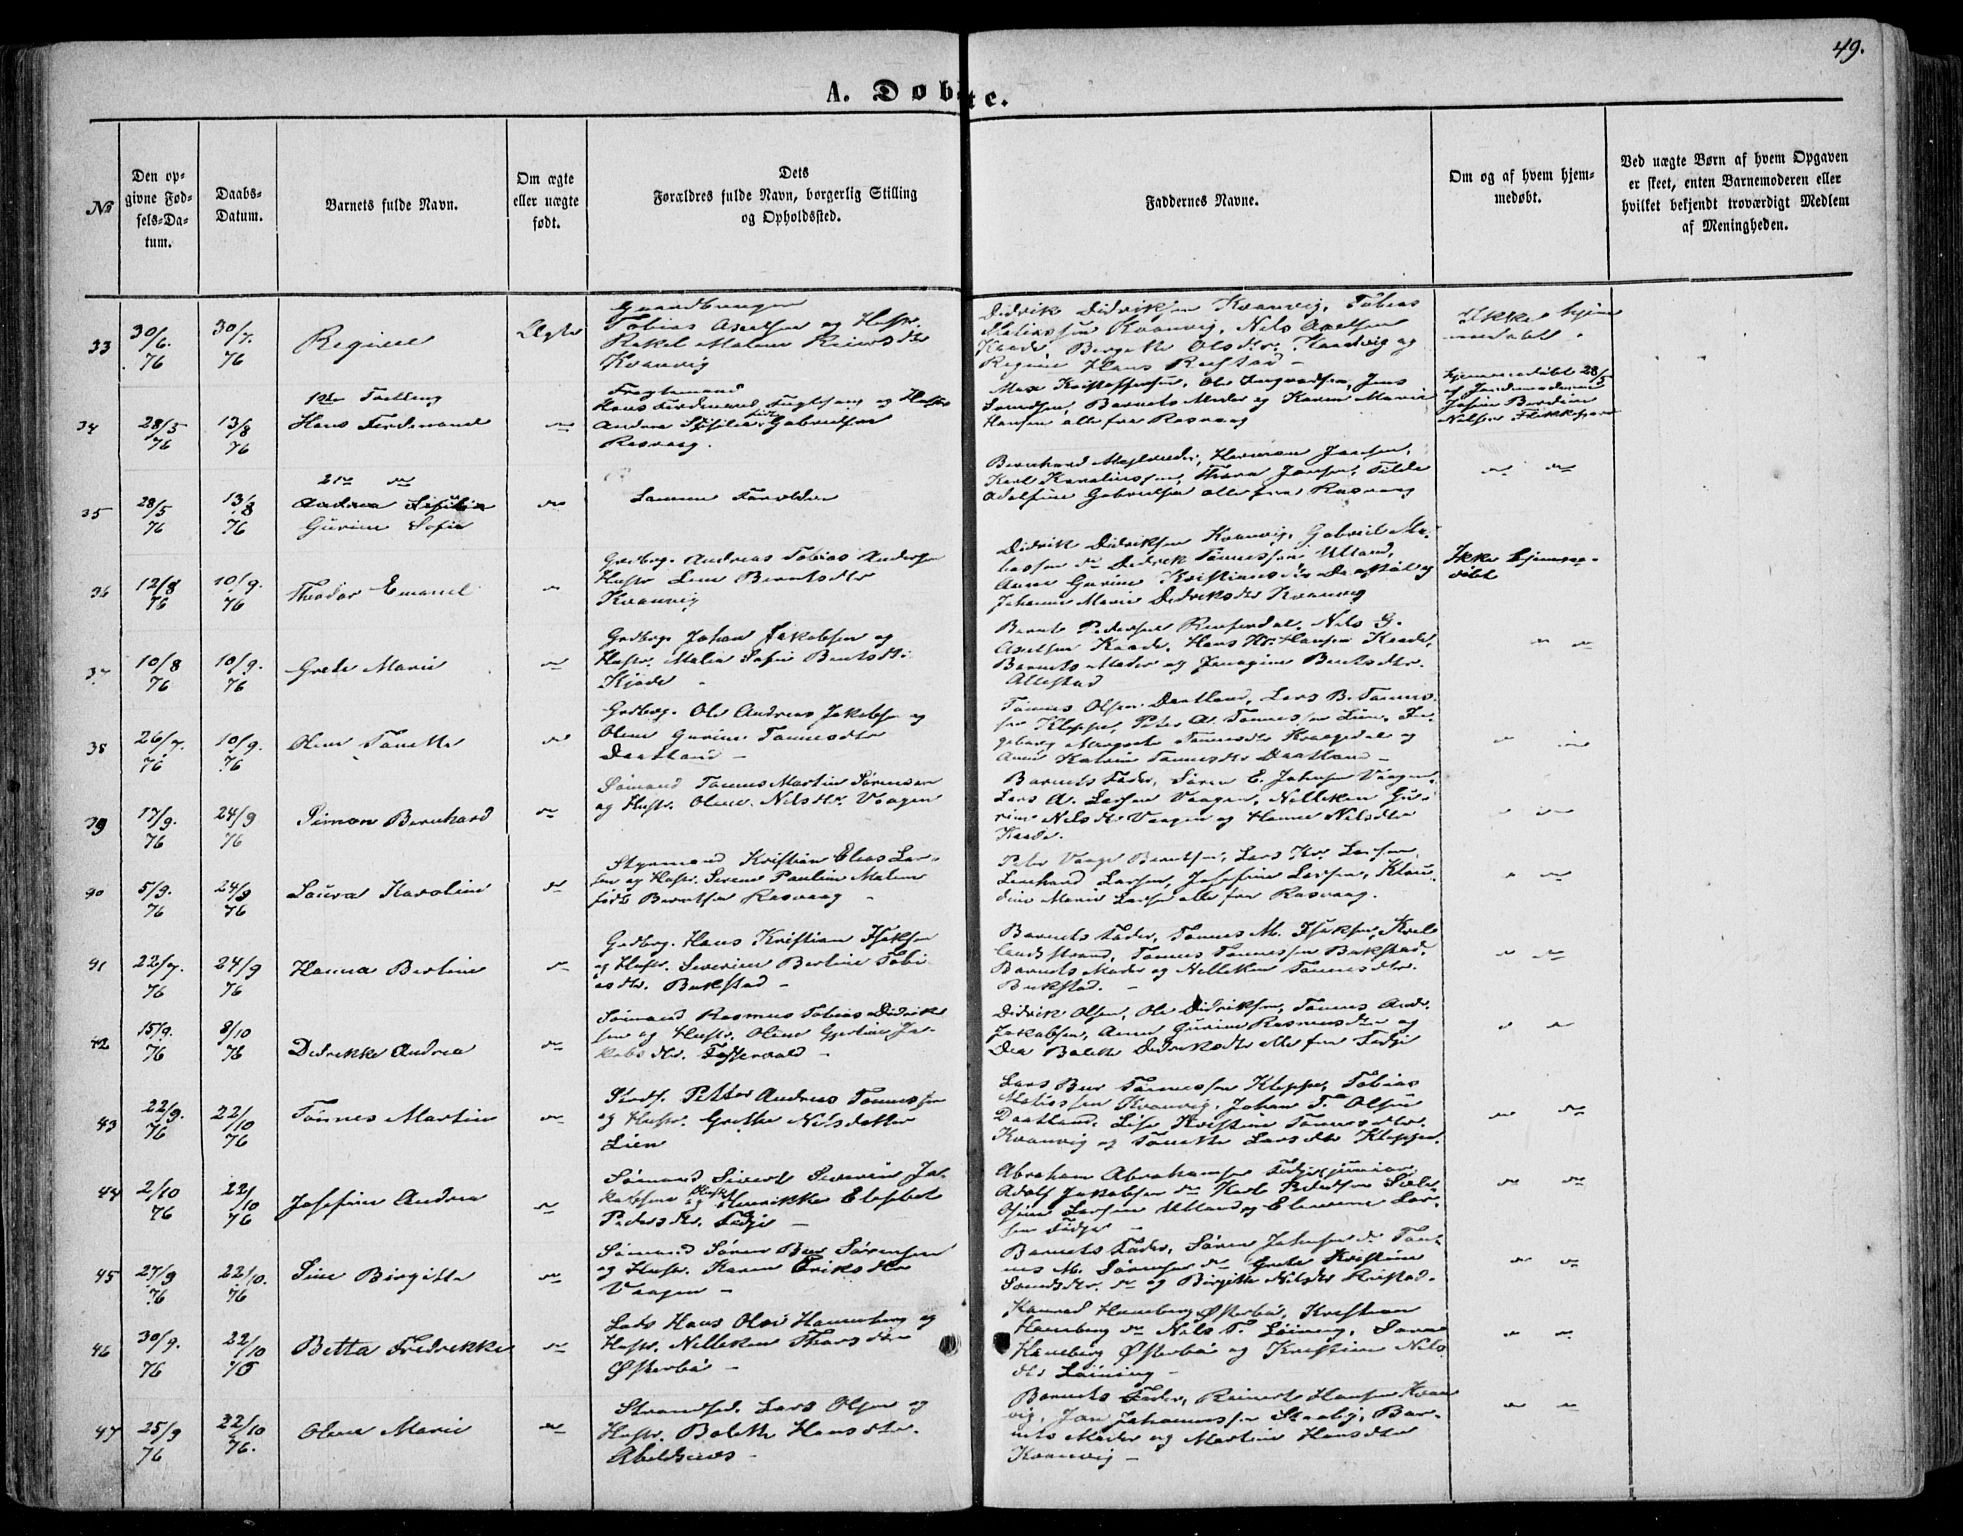 49.
A. Døbte.
No
Den opgivne Fødsels-Datum.
Daabs-Datum.
Barnets fulde Navn.
Om ægte eller uægte født.
Dets Forældres fulde Navn, borgerlig Stilling og Opholdssted.
Faddernes Navne.
Om og af hvem hjemmedøbt.
Ved uægte Børn af hvem Opgaven er skeet, enten Barnemoderen eller hvilket bekjendt troværdigt Medlem af Meningheden.
33
30/6. 76
30/7. 76
Regine
Ægte
Gaardbruger
Tobias Axelsen og Hustr.
Rakel Malene Reiersdtr
Kvanvig
Didrik Didriksen Kvanvig, Tobias
Matiassen Kvanvig, Nils Axelsen
Kaade, Bergitte Olsdtr. Kvanvig og
Regine Hans Refstad -
Ikke hjem
medøbt.
34
28/5 76
13/8 76
1ste Tvilling
Hans Ferdinand
Hans Ferdinand Fuglesang og Hustr
Andrea Gabrielsen
Rasvaag.
Jens
Barnets Moder og Karen Marie
Hansen alle fra Rasvaag
hjemmedøbt 28/5
af Jordmoderen
Nilsen Flikkeherr
35
28/5 76
13/8 76
2den do
Andrea
Gurine Sofie
Samme Forældre
Bernhard Herman Jansen,
Karl Thora Jansen, Tilda
Adolfine Gabrielsen alle fra Rasvaag
36
12/8 76
10/9. 76
Theodor Emanuel
Grdbrg. Andreas Tobias Andersen
Hustr Lene Berntsdtr
Kvanvig
Didrik Didriksen Kvanvig, Gabriel Ma-
tiassen do Didrik Tønnessen Ulland,
Anne Gurine Kristiansdtr og
Johanne Marie Didriksdtr Kvanvig
Ikke hjemme-
døbt
37
10/8 76
10/9. 76
Grete Marie
Grdbrg. Johan Jakobsen og
Hustr. Malene Sofie Berntsdtr
Kjøde -
Bernt Pedersen Nils G.
Axelsen Kaade, Hans Kr. Hansen Kaade,
Barnets Moder og Berntsdtr.
Allestad
38
26/7. 76
10/9. 76
Olene Tonette
Grdbrg. Ole Andreas Jakobsen og
Olene Gurine Tønnesdtr
Daatland -
Tønnes Olsen Daatland, Lars B. Tønnes-
sen Kleppe, Peter A. Tønnessen Lien, In-
geborg Margrete Tønnesdtr Kragedal og
Anne Katrine Tønnesdtr Daatland -
39
17/9. 76
24/9 76
Simon Bernhard
Sømand Tønnes Martin Sørensen
og Hustr. Olene Nilsdtr. Vaagen
Barnets Fader, Søren E. Johnsen Vaagen,
Lars A. Larsen Vaagen, Nelleken Gu-
rine Nilsdtr Vaagen og Hanne Nilsdtr
Kaade.
40
5/9. 76
24/9 76
Laura Karoline
Styrmand Kristian Elias Lar-
sen og Hustr. Serene Pauline Malene
født Berntsen Rasvaag -
Peter Vaage Berntsen, Lars Kr. Larsen,
Lenhard Larsen, Josefine Larsen, Klau-
dine Marie Larsen alle fra Rasvaag.
41
22/7. 76
24/9 76
Hanna Bertine
Grdbrg. Hans Kristian Isaksen
og Hustr. Severine Bertine Tobi-
asdtr. Bukstad -
Barnets Fader, Tønnes M. Isaksen, Kvel-
landsstrand, Tønnes Tønnessen Bukstad,
Barnets Moder og Nelleken Tønnesdtr.
Bukstad. -
42
15/9. 76
8/10 76
Didrikke Andrea
Sømand Rasmus Tobias Didrik-
sen og Hustr. Olene Gjertine Ja-
kobsdtr.
Didrik Olsen, Ole Didriksen, Tønnes Andr.
Jakobsen, Anne Gurine Rasmusdtr og
Dea Bolette Didriksdtr alle fra Fedje
43
22/9. 76
22/10 76
Tønnes Martin
Petter Andreas Tønnessen
og Hustr. Grethe Nilsdatter
Lien
Lars Bue Tønnessen Kleppe, Tobias
Matiassen Kvanvig, Johan T. Olsen
Daatland, Lise Kristine Tønnesdtr.
Kvanvig og Tonette Larsdtr Kleppe.
44
2/10 76
22/10 76
Josefine Andrea
Sømand Sivert Severin Ja-
kobsen og Hustr Henrikke Elisbet
Pedersdtr. Fedje -
Abraham Abrahamsen Fedje junior
Adolf Jakobsen do Karl
Larsen Ulland og Elevine Lar-
sen Fedje -
45
27/9 76
22/10. 76
Sine Birgitte
Sømand Søren Bue Sørensen
og Hustr. Karen Eriksdtr
Vaagen -
Barnets Fader, Søren Johnsen do Tøn-
nes M. Sørensen do Grete Kristine
do og Birgitte Nilsdtr Refstad.
46
30/9. 76
22/10 76
Betta Fredrikke
Lods Hans Olai Haneberg og
Hustr. Nelleken Thorsdtr
Østerbø -
Konrad Haneberg Østerbø, Kristian
Haneberg do Nils T. Løining,
Haneberg Østerbø og Kristine Nils-
dtr Løining -
47
25/9 76
22/10 76.
Olena Marie
Strandsd. Lars Olsen og
Hustr. Bolette Hansdtr.
Abelsnes -
Barnets Fader, Reinert Hansen Kvan-
vig, Jan Johannessen Bar-
nets Moder og Martine Hansdtr
Kvanvig -